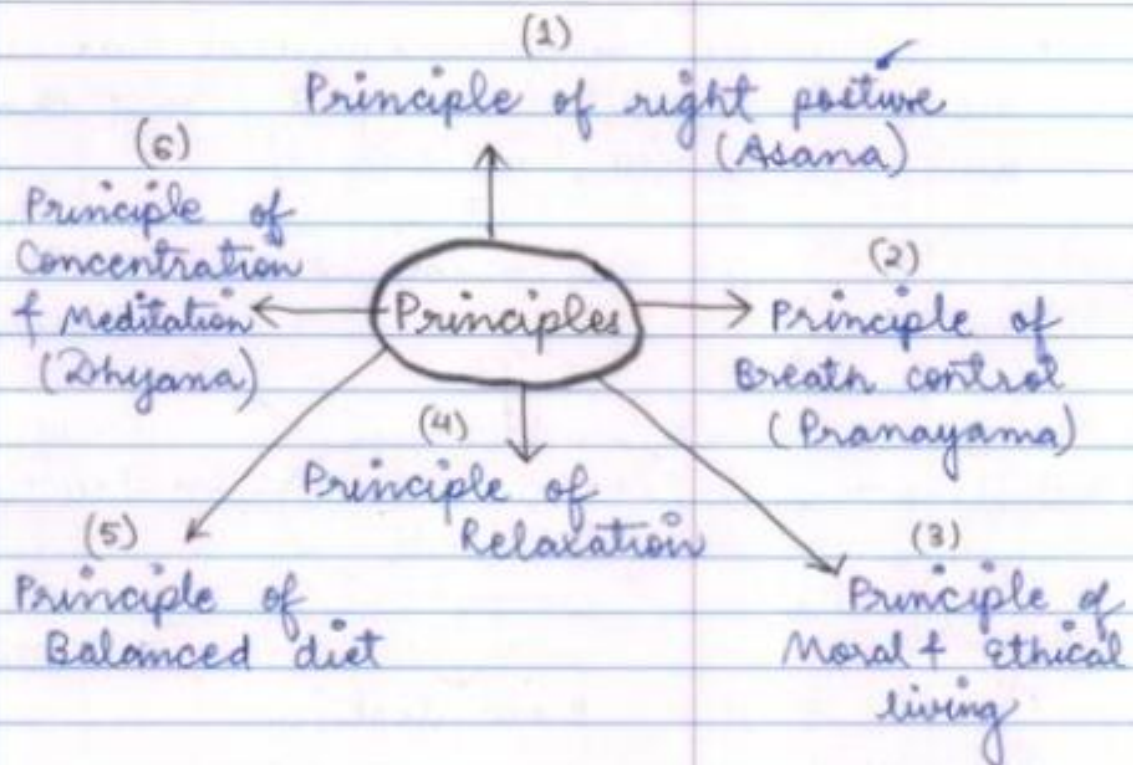 (1)
Principle of right posture
(Asana)
(6)
Principle of
Concentration
& Meditation
(Dhyana)
Principles
(2)
Principle of
Breath control
(Pranayama)
(4)
Principle of
Relaxation
(5)
Principle of
Balanced diet
(3)
Principle of
Moral & Ethical
living